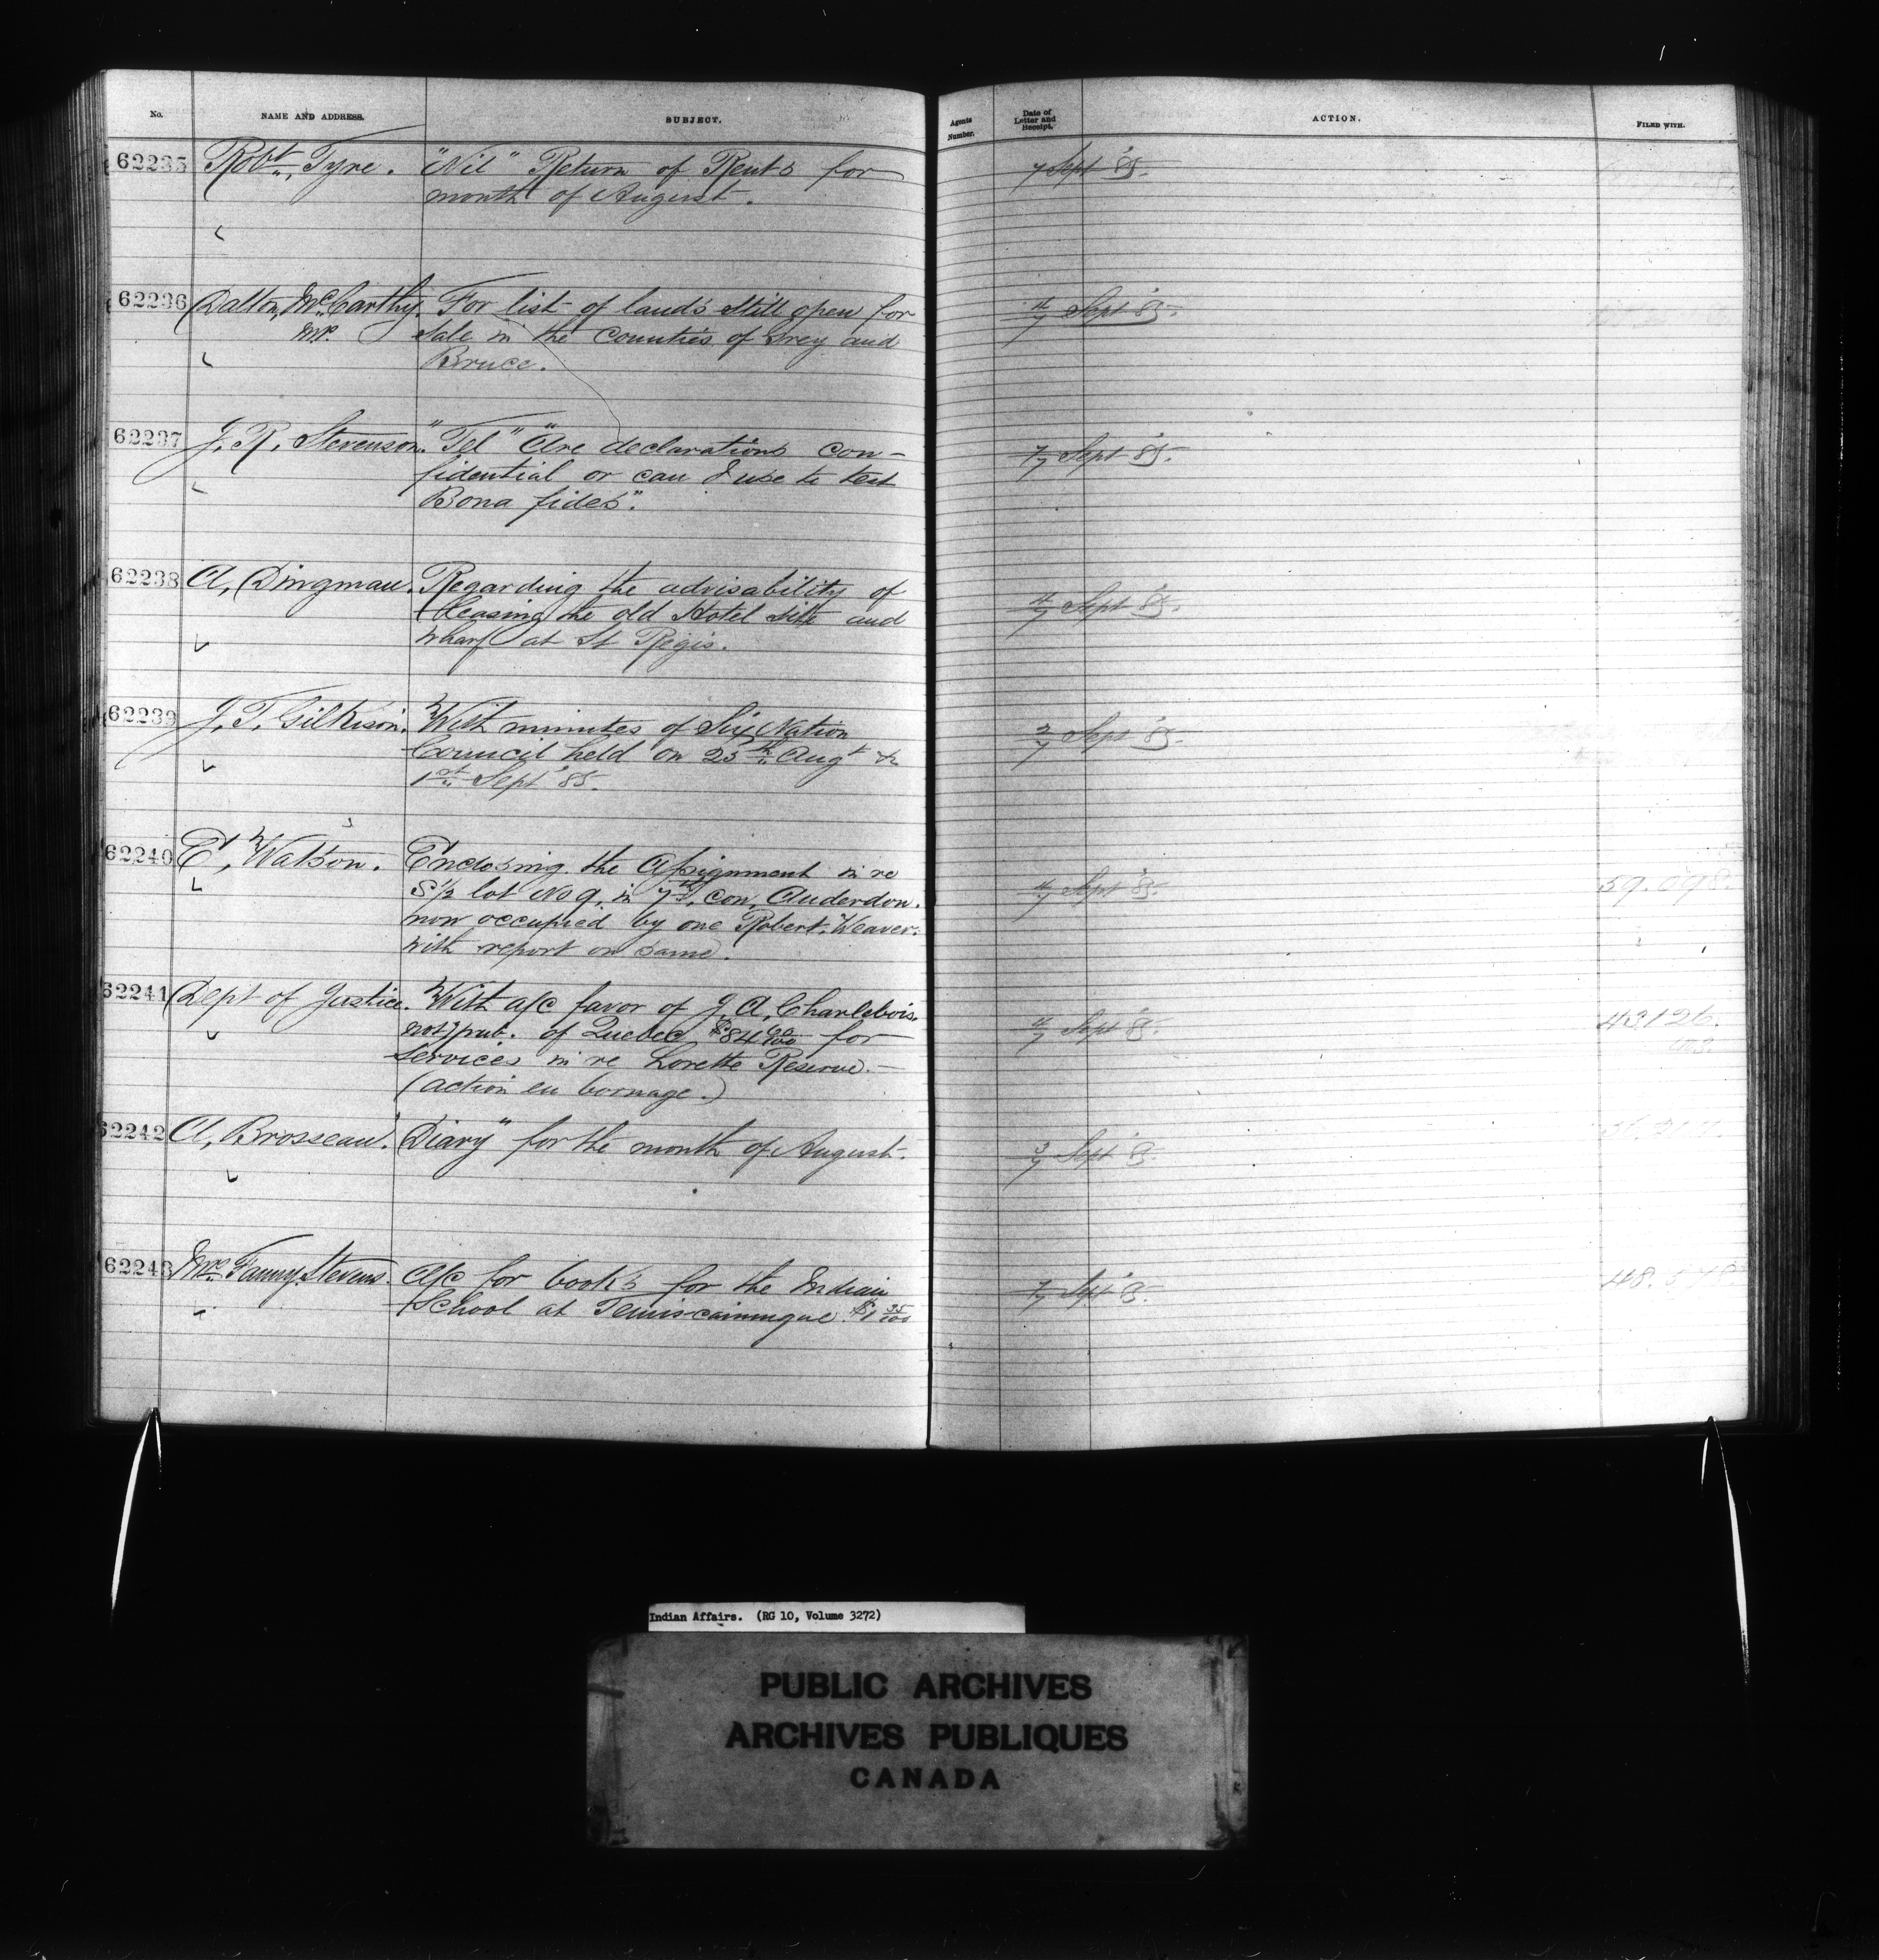 No. NAME AND ADDRESS. SUBJECT. Agents Number. Date of Letter and Receipt. ACTION. FILED WITH.
62235 Robt. Tyre. "Nil" Return of Rents for 7 Sept '85.
month of August.
62236 Dalton McCarthy. For list of lands still open for 4/7 Sept '85.
MP. Sale in the Counties of Grey and
Bruce.
62237 J. R. Stevenson. "Tel" "Are declarations con- 7/7 Sept '85.
fidential or can I use to test
Bona fides".
62238 A. Dingman. Regarding the advisability of 4/7 Sept '85.
leasing the old Hotel site and
wharf at St Regis.
62239 J. T. Gilkison. With minutes of Six Nation 2/7 Sept '85.
Council held on 25th Augt &
1st Sept '85.
62240 E. Watson. Enclosing the Assignment in re 4/7 Sept '85. 59.098.
S 1/2 lot No 9, in 7th con, Anderdon.
now occupied by one Robert Weaver.
with report on same.
62241 Dept of Justice. With a/c favor of J. A. Charlebois. 4/7 Sept '85. 43126.
not'y pub. of Quebec $84 90/100 for
services in re Lorette Reserve.—
(action en bornage.)
62242 A. Brosseau. "Diary" for the month of August. 3/7 Sept '85.
62243 Mrs. Fanny Stevens. A/c for books for the Indian 7/7 Sept '85.
School at Temiscamingue. $1 35/100
Indian Affairs. (RG 10, Volume 3272)
PUBLIC ARCHIVES
ARCHIVES PUBLIQUES
CANADA